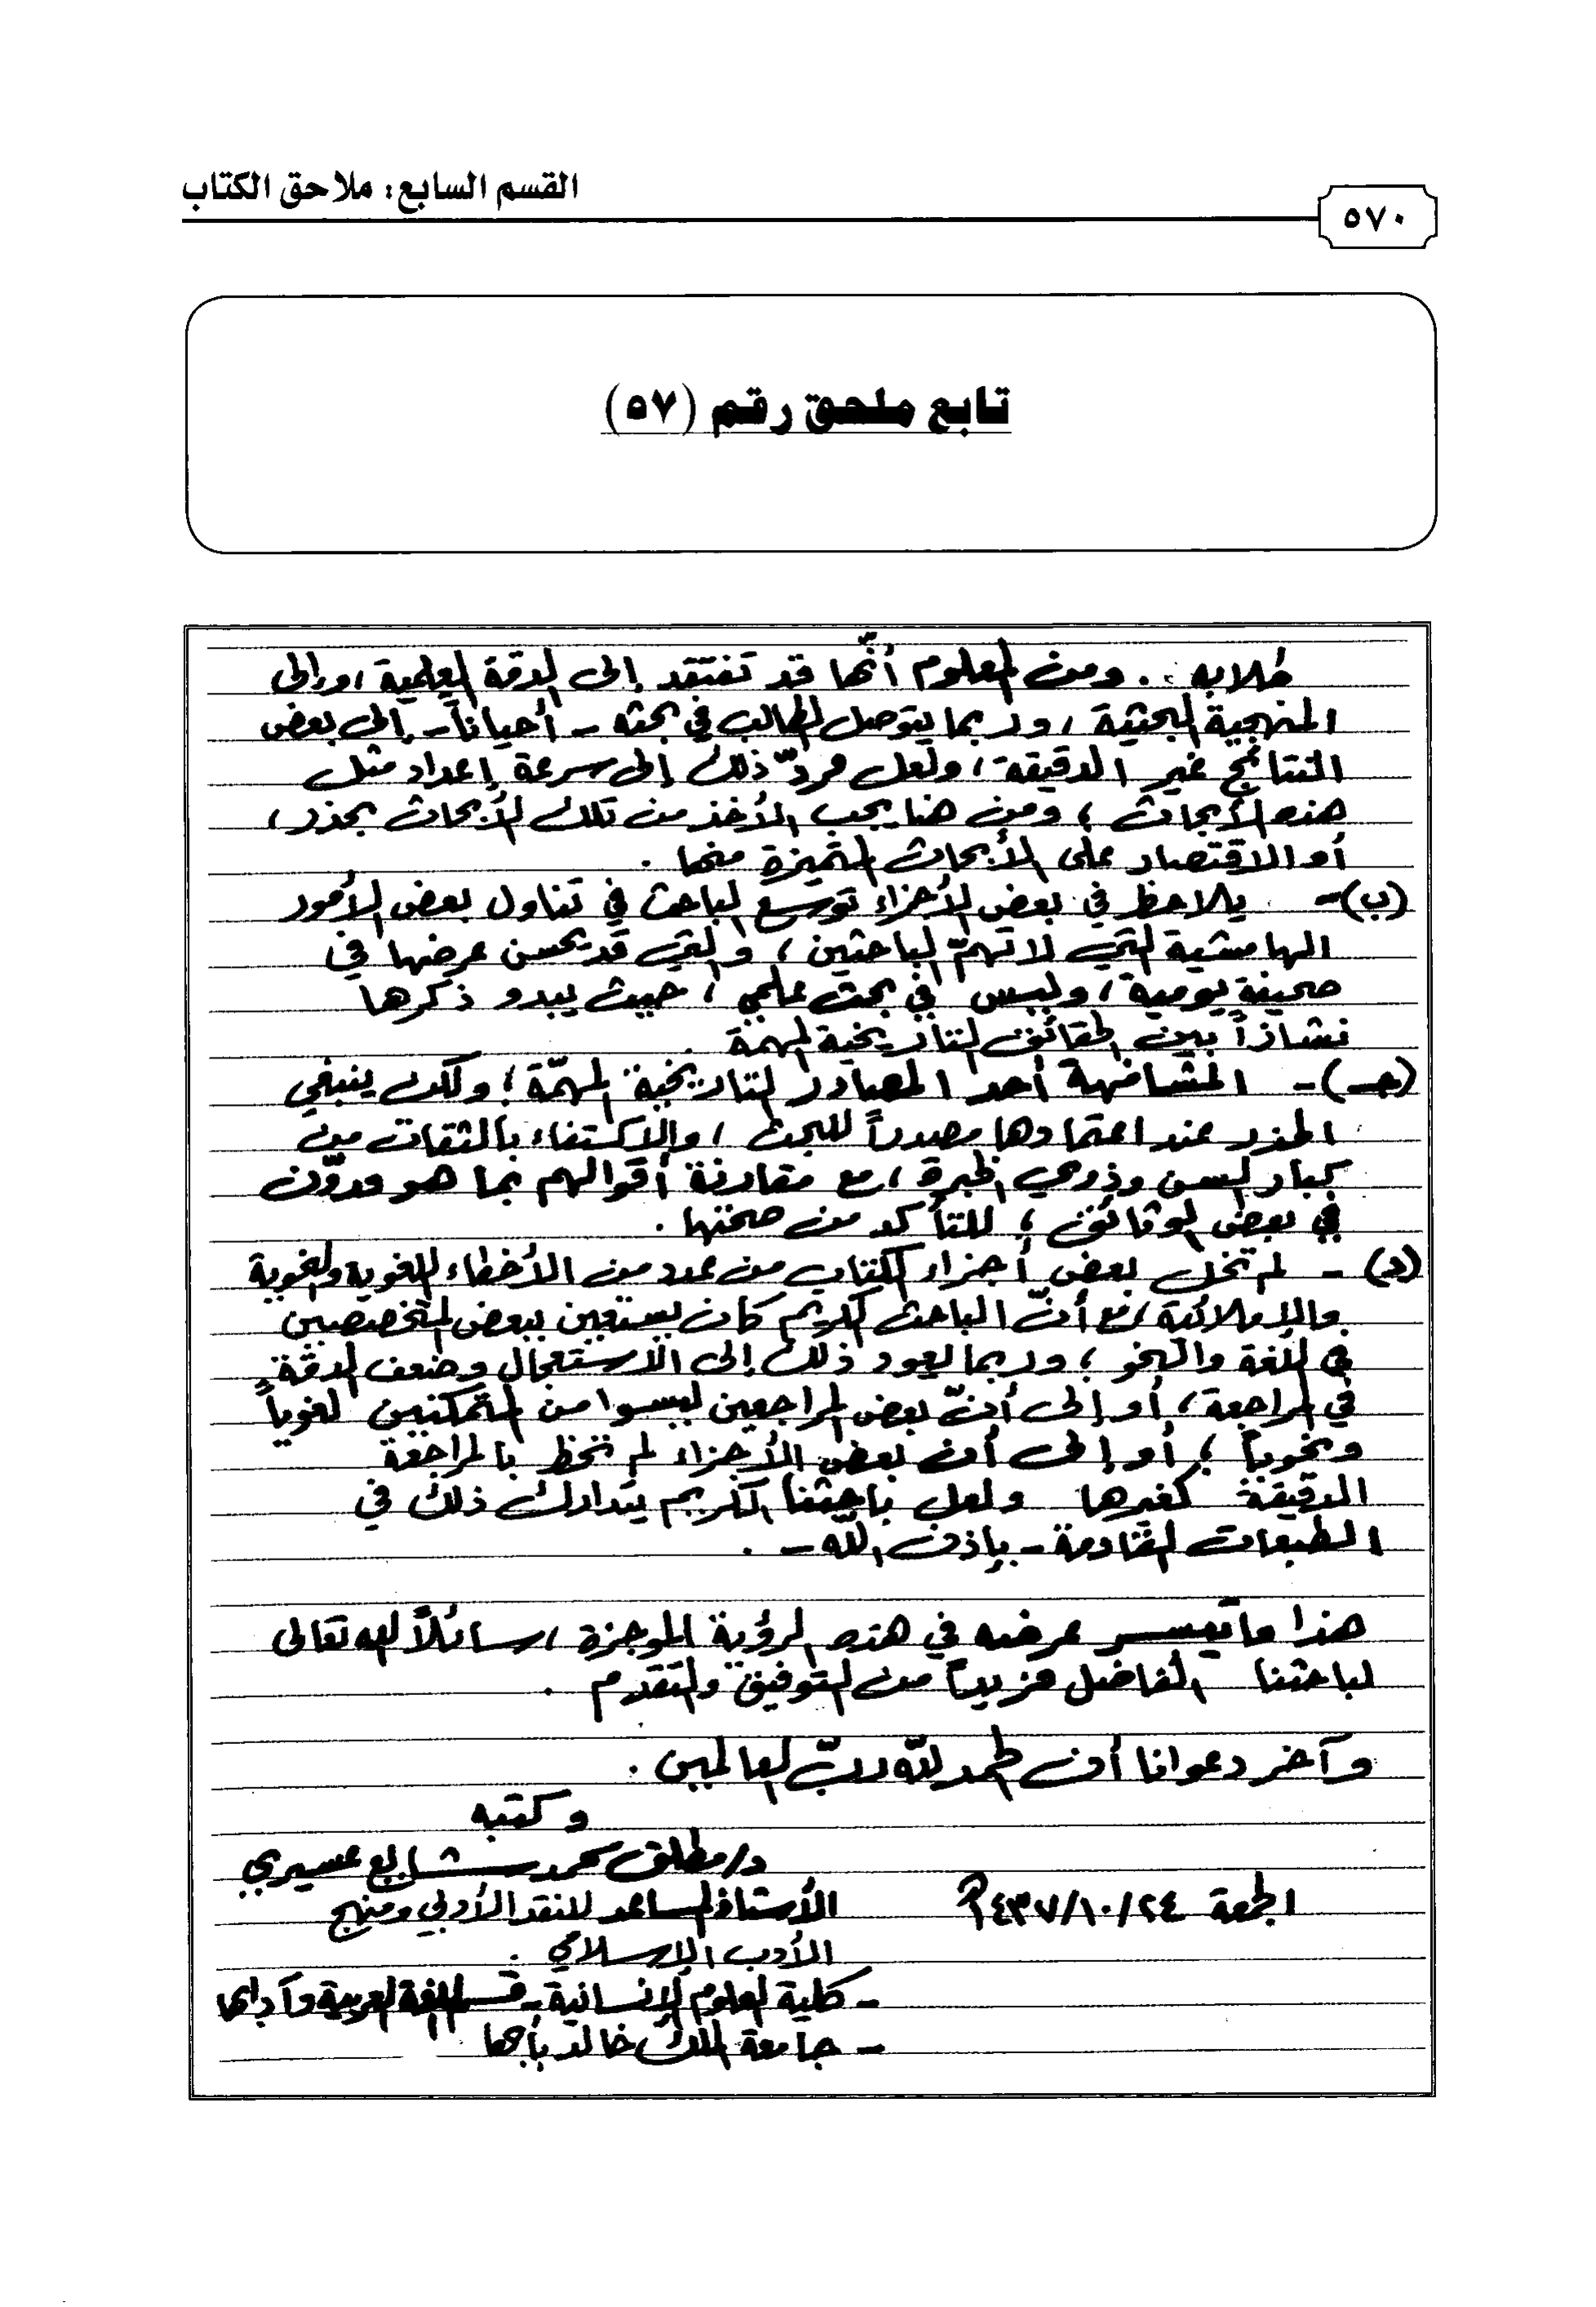 القسم السابع: ملاحق الكتاب
٥٧٠
تابع ملحق رقم (٥٧)
طلابه .. ومن المعلوم أنّها قد تفتقد إلى الدقة العلمية، وإلى
المنهجية البحثية، وربما يتوصل الطالب في بحثه - أحياناً - إلى بعض
النتائج غير الدقيقة، ولعل مردّ ذلك إلى سرعة إعداد مثل
هذه الأبحاث؛ ومن هنا يجب الأخذ من تلك الأبحاث بحذر،
أو الاقتصار على الأبحاث المتميزة منها .
(ب)- يلاحظ في بعض الأجزاء توسع الباحث في تناول بعض الأمور
الهامشية التي لا تهمّ الباحثين، والتي قد يحسن عرضها في
صحيفة يومية، وليس في بحث علمي، حيث يبدو ذكرها
نشازاً بين الحقائق التاريخية المهمة .
(جـ)- المشافهة أحد المصادر التاريخية المهمّة؛ ولكن ينبغي
الحذر عند اعتمادها مصدراً للبحث، والاكتفاء بالثقات من
كبار السن وذوي الخبرة، مع مقارنة أقوالهم بما هو مدوّن
في بعض الوثائق؛ للتأكد من صحتها .
(د) - لم تخل بعض أجزاء الكتاب من عدد من الأخطاء اللغوية والنحوية
والإملائية، مع أنّ الباحث الكريم كان يستعين ببعض المتخصصين
في اللغة والنحو؛ وربما يعود ذلك إلى الاستعجال وضعف الدقة
في المراجعة، أو إلى أنّ بعض المراجعين ليسوا من المتمكنين لغوياً
ونحوياً؛ أو إلى أن بعض الأجزاء لم تحظ بالمراجعة
الدقيقة كغيرها ولعل باحثنا الكريم يتدارك ذلك في
الطبعات القادمة - بإذن الله - .
هذا ما تيسر عرضه في هذه الرؤية الموجزة، سائلاً الله تعالى
لباحثنا الفاضل مزيداً من التوفيق والتقدم .
وآخر دعوانا أن الحمد لله ربّ العالمين .
وكتبه
د/ مطلق محمد شايع عسيري
الجمعة ٢٤/١٠/١٤٣٧هـ
الأستاذ المساعد للنقد الأدبي ومنهج
الأدب الإسلامي .
- كلية العلوم الإنسانية - قسم اللغة العربية وآدابها
- جامعة الملك خالد بأبها